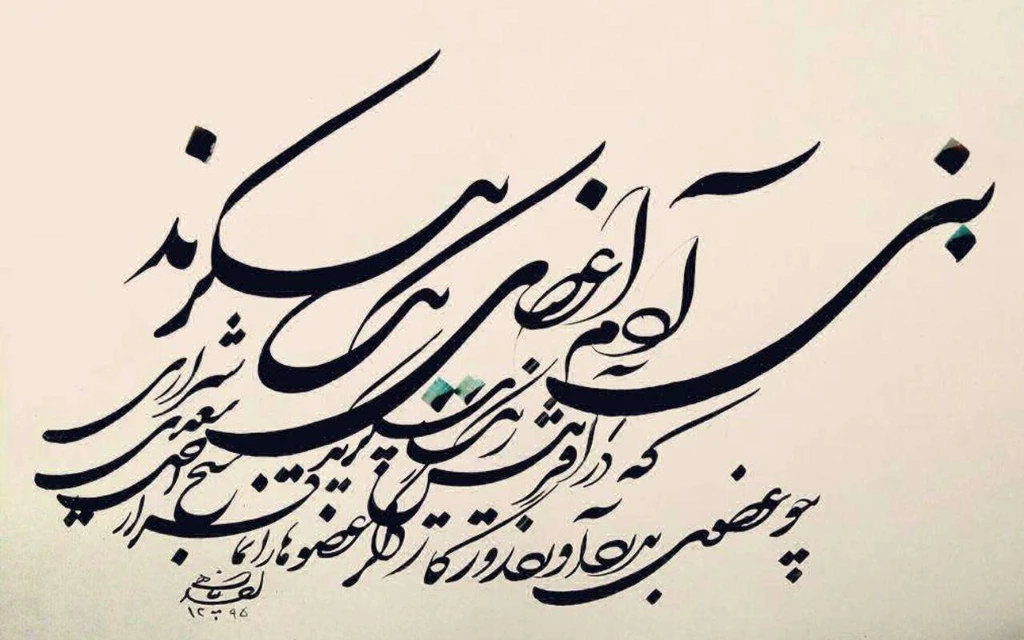 بنی آدم اعضای یکدیگرند
که در آفرینش ز یک گوهرند
چو عضوی بدرد آورد روزگار
دگر عضوها را نماند قرار
شیخ اجل سعدی شیرازی
۹۵
۱۲